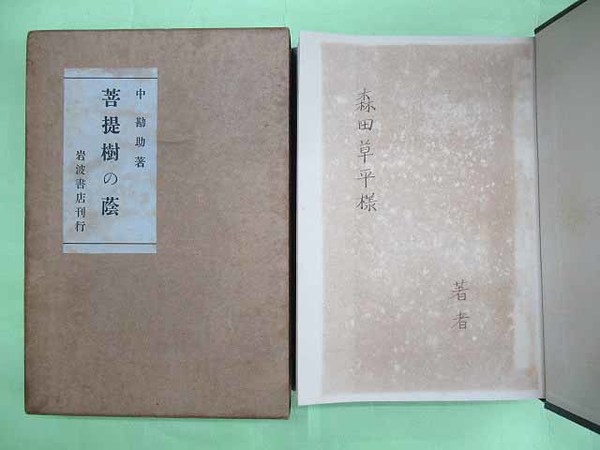 中勘助著
菩提樹の蔭
岩波書店刊行
森田草平様
著者